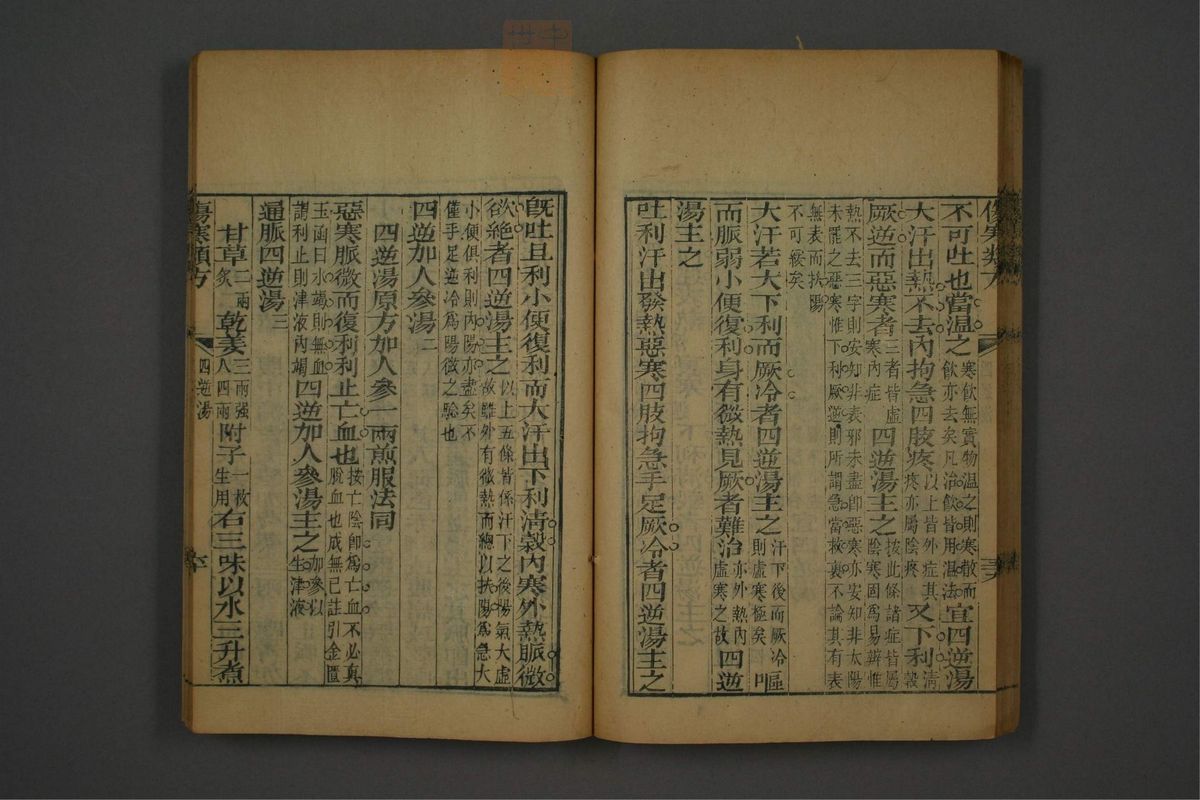 傷寒類方
不可吐也當温之寒飲無實物温之則寒散而飲亦去矣凡治飲皆用温法宜四逆湯
大汗出熱不去内拘急四肢疼以上皆外症其疼亦屬陰疼又下利清穀
厥逆而惡寒者三者皆虛寒内症四逆湯主之按此條諸症皆屬陰寒固爲易辨惟
熱不去三字則安知非表邪未盡卽惡寒亦安知非太陽
未罷之惡寒惟下利厥逆則所謂急當救裏不論其有表
無表而扶陽
不可緩矣
大汗若大下利而厥冷者四逆湯主之汗下後而厥冷則虛寒極矣嘔
而脈弱小便復利身有微熱見厥者難治亦外熱内虛寒之故四逆
湯主之
吐利汗出發熱惡寒四肢拘急手足厥冷者四逆湯主之
既吐且利小便復利而大汗出下利清穀内寒外熱脈微
欲絶者四逆湯主之以上五條皆係汗下之後陽氣大虛故雖外有微熱而總以扶陽爲急大
小便俱利則内陽亦盡矣不
僅手足逆冷爲陽微之騐也
四逆加人參湯二
四逆湯原方加人參一兩煎服法同
惡寒脈微而復利利止亡血也按亡陰卽爲亡血不必真脫血也成無已註引金匱
玉函曰水竭則無血謂利止則津液内竭四逆加人參湯主之加參以生津液
通脈四逆湯三
甘草二兩炙乾姜三兩强人四兩附子一枚生用右三味以水三升煑
傷寒類方
四逆湯
六